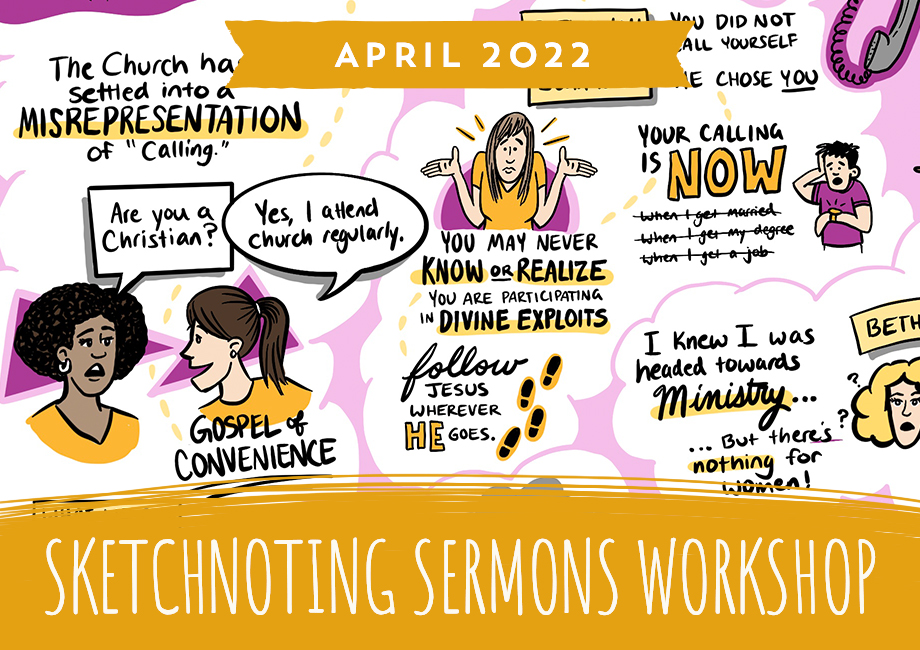 APRIL 2022
The Church has
settled into a
MISREPRESENTATION
of "Calling."
Are you a
Christian?
Yes, I attend
church regularly.
GOSPEL of
CONVENIENCE
YOU MAY NEVER
KNOW OR REALIZE
YOU ARE PARTICIPATING
IN DIVINE EXPLOITS
follow
JESUS
WHEREVER
HE GOES.
YOU DID NOT
CALL YOURSELF
HE CHOSE YOU
YOUR CALLING
IS NOW
When I get married
When I get my degree
When I get a job
I KNEW I was
headed towards
Ministry...
... But there's
nothing for
women!
?
?
BETH
SKETCHNOTING SERMONS WORKSHOP